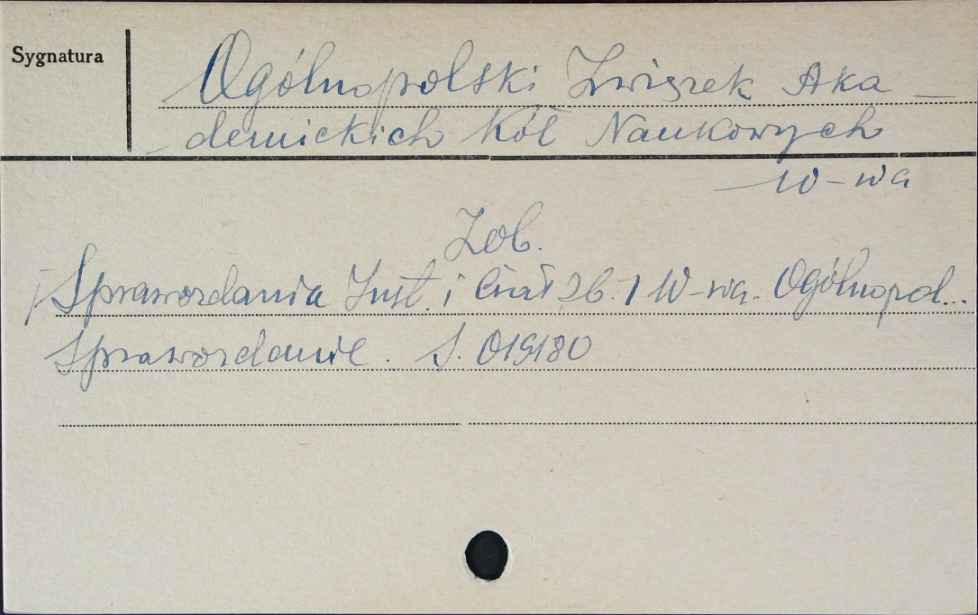 Sygnatura
Ogólnopolski Związek Aka-
demickich Kół Naukowych
W-wa
Zob.
Sprawozdania Inst. i Ciał zb. / W-wa. Ogólnopol...
Sprawozdanie. S. 019180